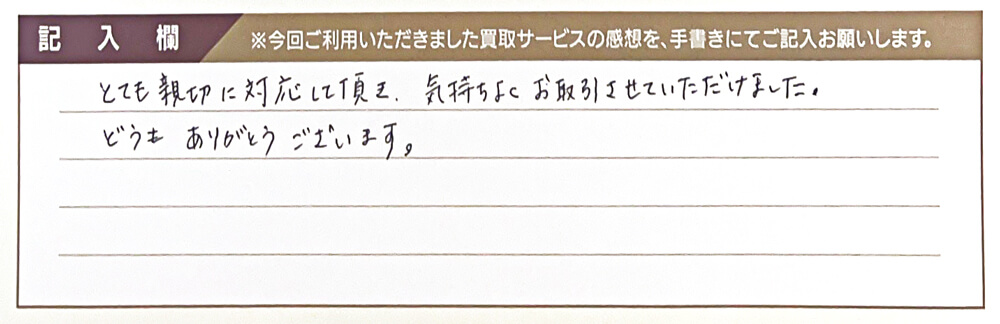 記入欄
※今回ご利用いただきました買取サービスの感想を、手書きにてご記入お願いします。
とても親切に対応して頂き、気持ちよくお取引させていただけました。
どうもありがとうございます。